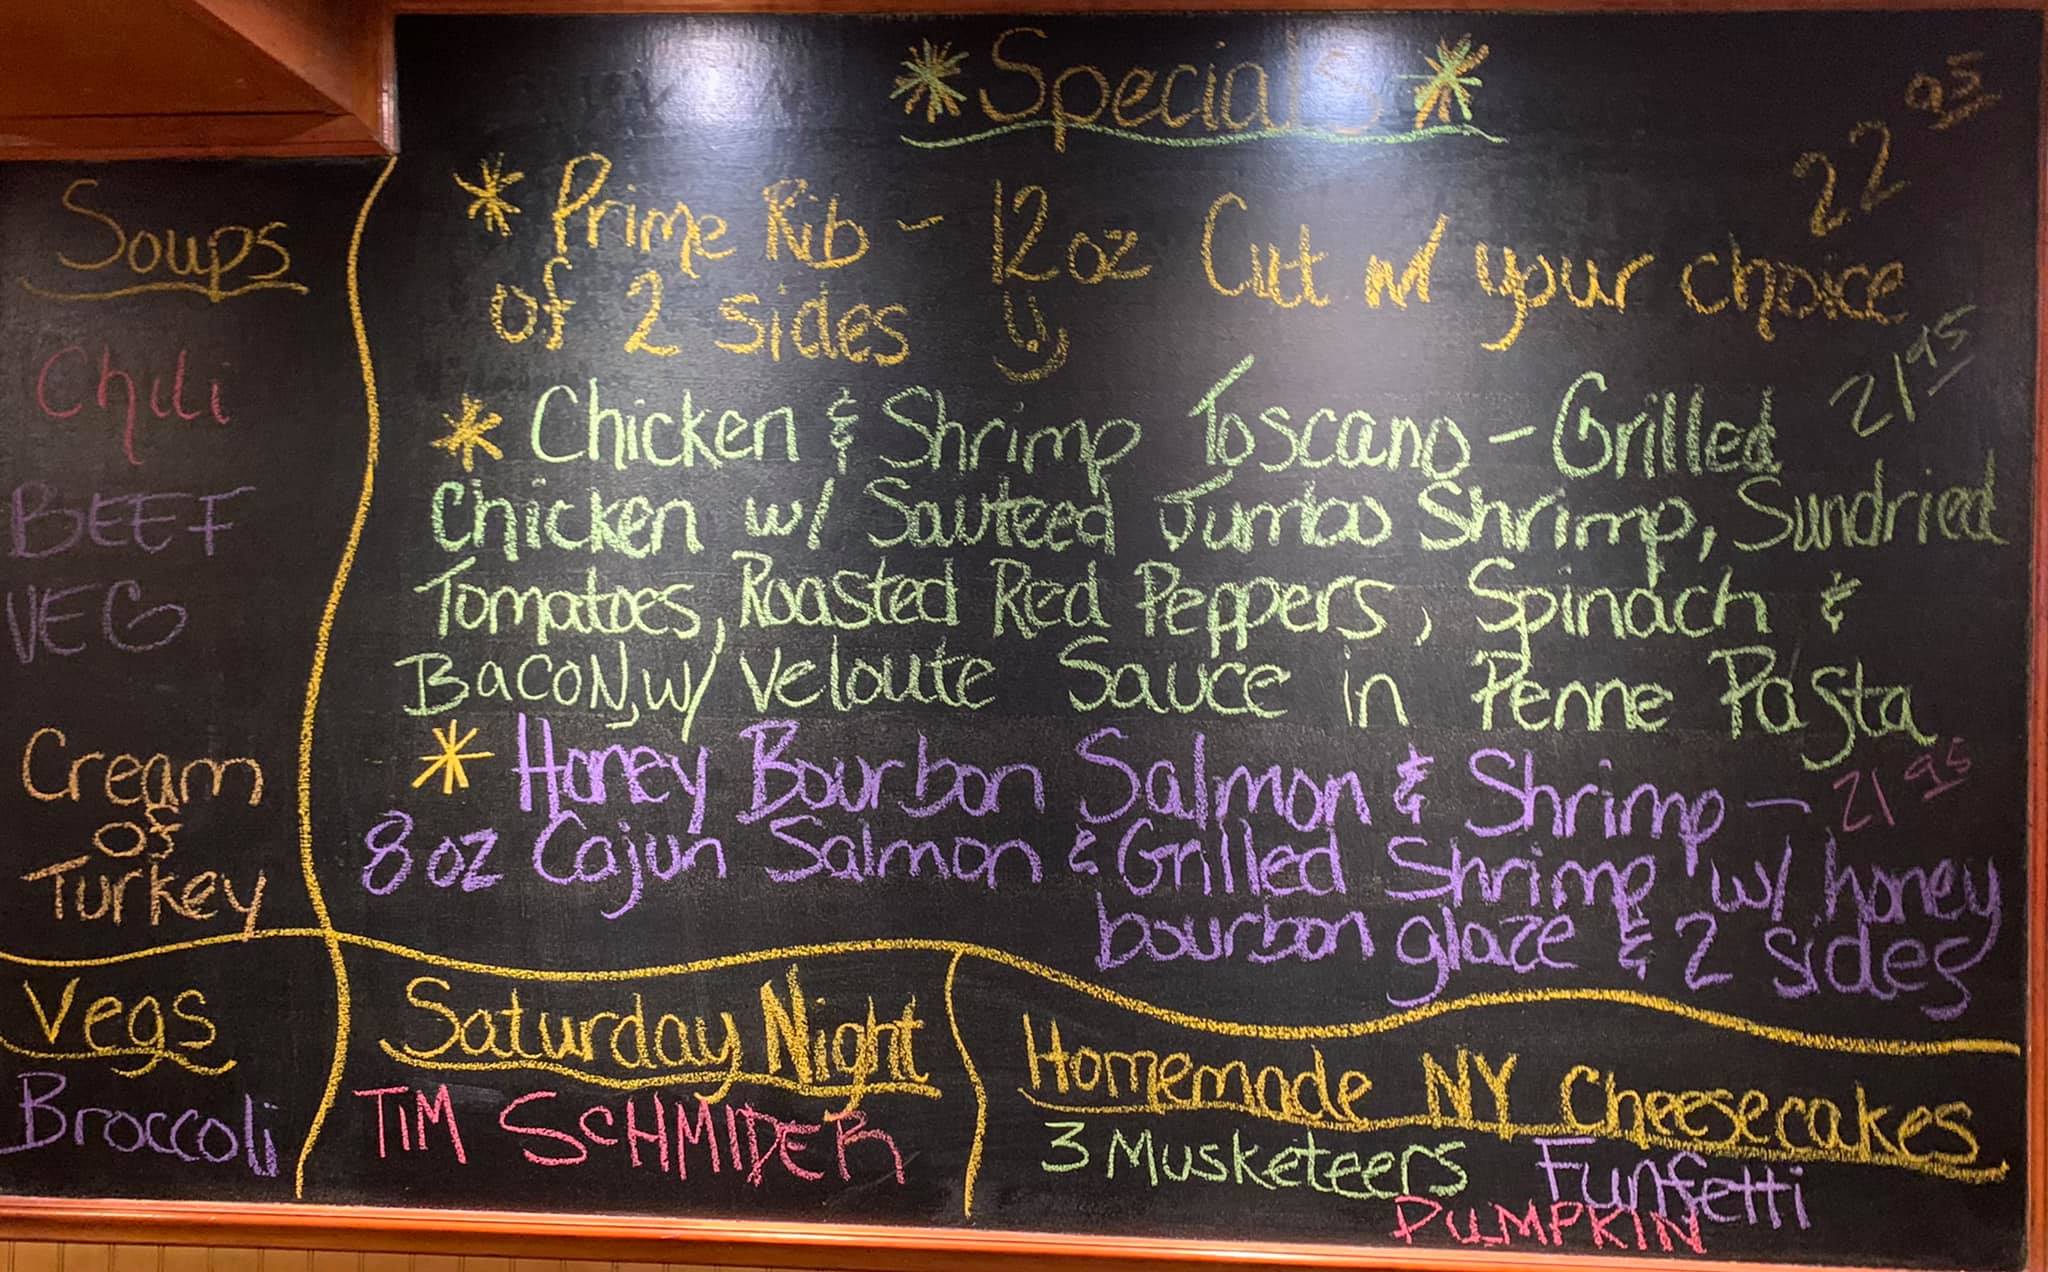 Soups
Chili
BEEF
VEG
Cream
of
Turkey
Vegs
Broccoli
Specials
Prime Rib - 12 oz Cut w/ your choice 22 95
of 2 sides
Chicken & Shrimp Toscano - Grilled 21 95
Chicken w/ Sauteed Jumbo Shrimp, Sundried
Tomatoes, Roasted Red Peppers, Spinach &
Bacon, w/ Veloute Sauce in Penne Pasta
Honey Bourbon Salmon & Shrimp - 21 95
8 oz Cajun Salmon & Grilled Shrimp w/ honey
bourbon glaze & 2 sides
Saturday Night
TIM SCHMIDER
Homemade NY Cheesecakes
3 Musketeers Funfetti
PUMPKIN